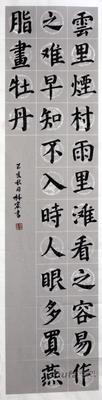 雲里煙村雨里滩看之容易作
之难早知不入時人眼多買燕
脂畫牡丹